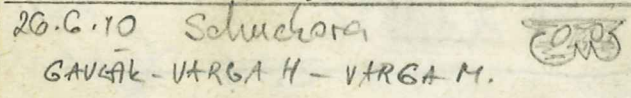 26.6.10 Schuckora
GAVLÁK - VARGA H - VARGA M.